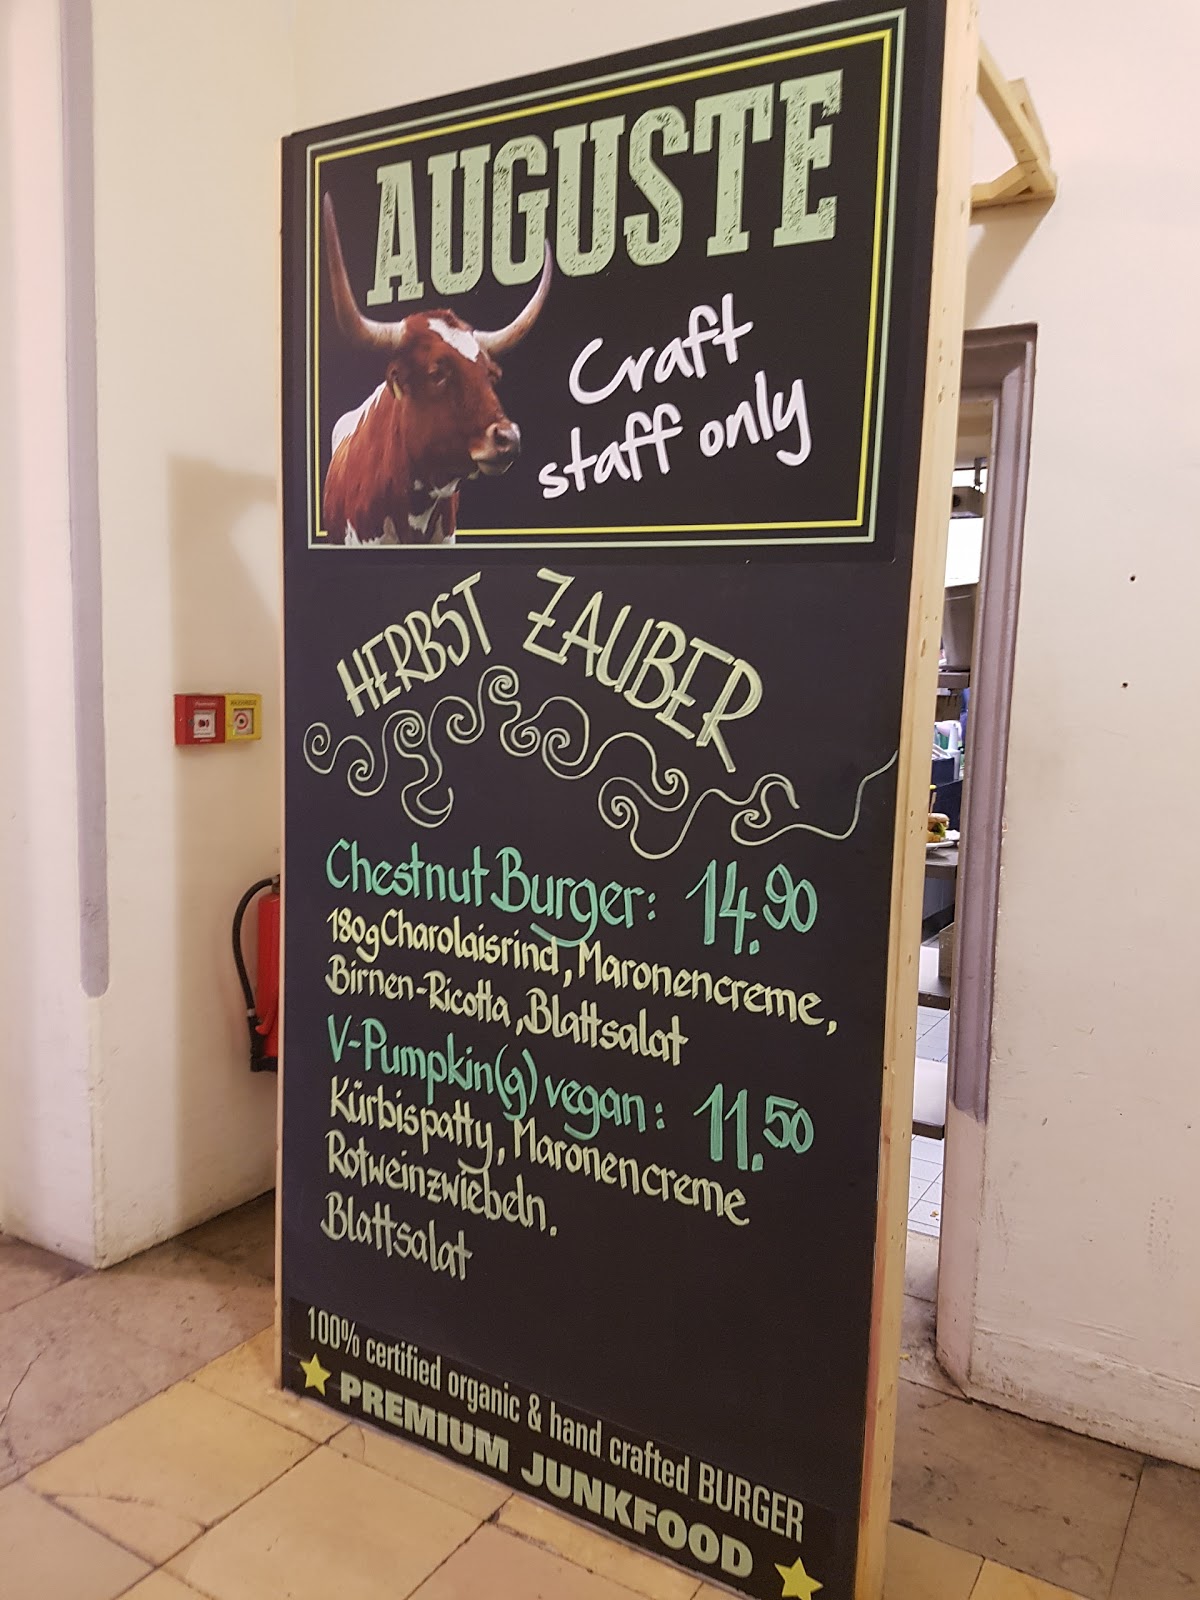 AUGUSTE
Craft
staff only
HERBST ZAUBER
Chestnut Burger: 14.90
180g Charolaisrind, Maronencreme,
Birnen-Ricotta, Blattsalat
V-Pumpkin(g) vegan: 11.50
Kürbispatty, Maronencreme
Rotweinzwiebeln.
Blattsalat
100% certified organic & hand crafted BURGER
PREMIUM JUNKFOOD